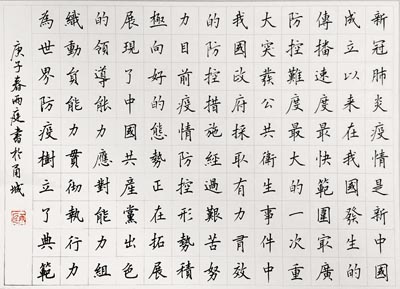 新冠肺炎疫情是新中國
成立以來在我國發生的
傳播速度最快範圍冣廣
防控難度最大的一次重
大突發公共衛生事件中
我國政府採取有力有效
的防控措施經過艱苦努
力目前疫情防控形勢積
極向好的態勢正在拓展
展現了中國共產黨出色
的領導能力應對能力組
織動員能力貫彻執行力
為世界防疫樹立了典範
庚子春雨庭書於甬城